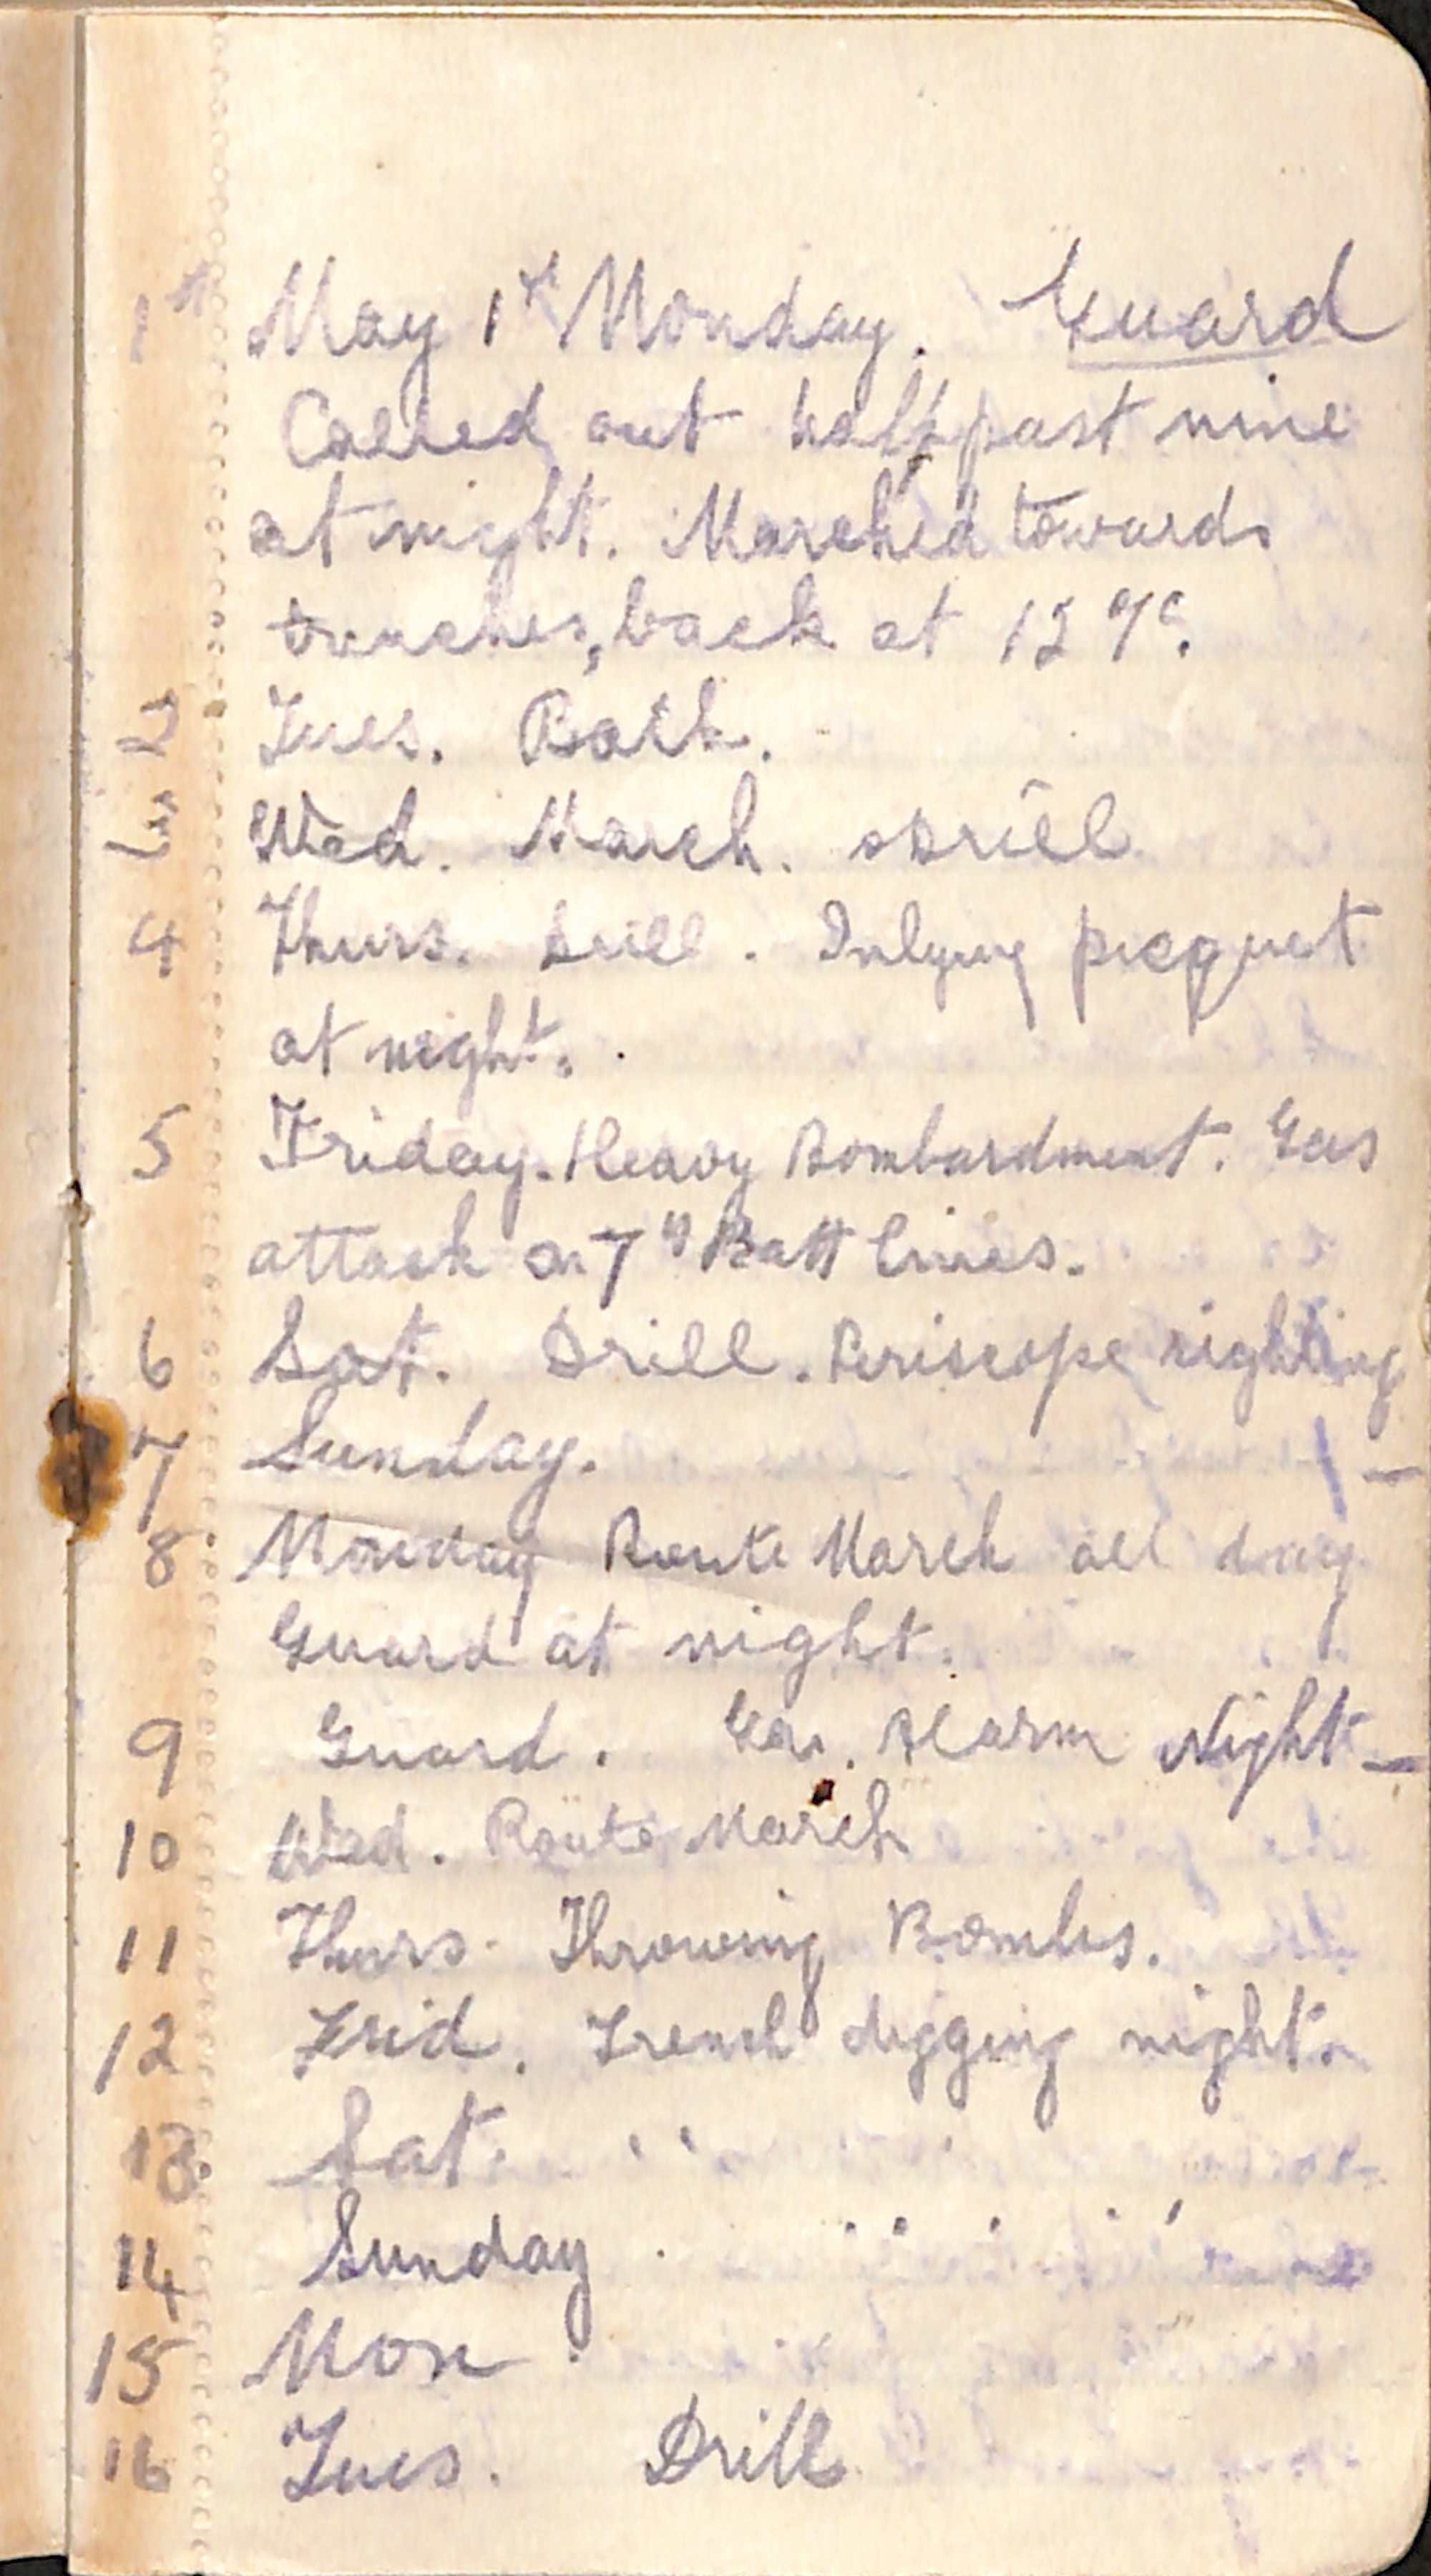 1st May 1st Monday. Guard
Called out half past nine
at night. Marched towards
trenches, back at 12
2 Tues. Bath.
3 Wed. March. Drill
4 Thurs. Drill. Inlying picquet
at night.
5 Friday. Heavy Bombardment. Gas
attack on 7th Batt lines.
6 Sat. Drill. Periscope sighting
7 Sunday.
8 Monday Route March all day
Guard at night.
9 Guard. Gas. Alarm Night —
10 Wed. Route March
11 Thurs. Throwing Bombs.
12 Frid. Trench digging night.
13. Sat. "
14 Sunday.
15 Mon
16 Tues. Drill